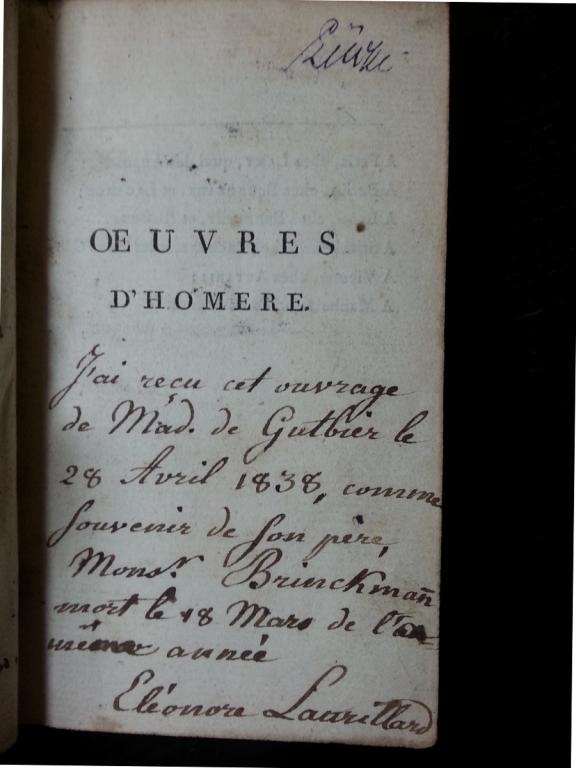 OEUVRES
D'HOMERE.
J'ai recu cet ouvrage
de Mad. de Gutbier le
28 Avril 1838, comme
souvenir de son père,
Monsr. Brinckmann
mort le 18 Mars de l'
même année
Eléonore Laurillard